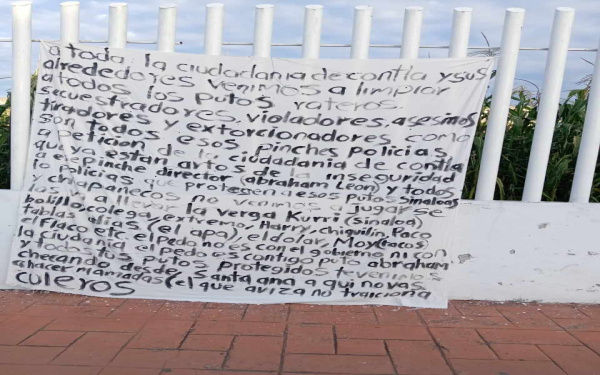 a toda la ciudadania de contla y sus
alrededores venimos a limpiar
a todos los putos rateros.
secuestradores. violadores. asesinos
tiradores y extorcionadores como
son todos esos pinches policias
a peticion de la ciudadania de contla
que ya estan arto de la inseguridad
a el pinche director (abraham Leon) y todos
lo policias que protege a esos putos sinaloas
y chiapanecos no venimos jugar se
los a llevar la verga Kurri (sinaloa)
bolillo, colega, extremo, Harry, chiquilin, Paco
tablas alias (el apa), el dolar, Moy (tacos)
el Flaco etc el pedo no es con el gobierno ni con
la ciudania el pedo es contigo puto abraham
y todos tus putos protegidos te venimos
checando desde santa ana a qui no vas
a hacer mamadas (el que aviza no traiciona
culeros